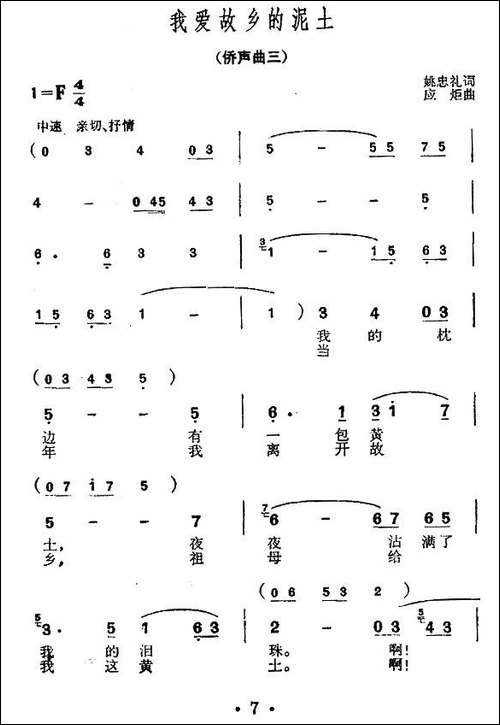 我爱故乡的泥土
(侨声曲三)
1=F 4/4
姚忠礼词
应 炬曲
中速 亲切、抒情
( 0 3 4 0 3 | 5 - 5 5 7 5
4 - 0 45 4 3 | 5 - - 5
6 · 6 3 3 | 3 1 - 1 5 6 3
1 5 6 3 1 - | 1 ) 3 4 0 3
我 的 枕
当
( 0 3 4 3 5 )
5 - - 5 | 6 · 1 3 i 7
边 有 一 包 黄
年 我 离 开 故
( 0 7 i 7 5 )
5 - - 7 | 7 6 - 6 7 6 5
土, 夜 夜 沾 满 了
乡, 祖 母 给
( 0 6 5 3 2 )
5 3 · 5 1 6 3 | 2 - 0 3 5 4 3
我 的 泪 珠。 啊!
我 这 黄 土。 啊!
· 7 ·